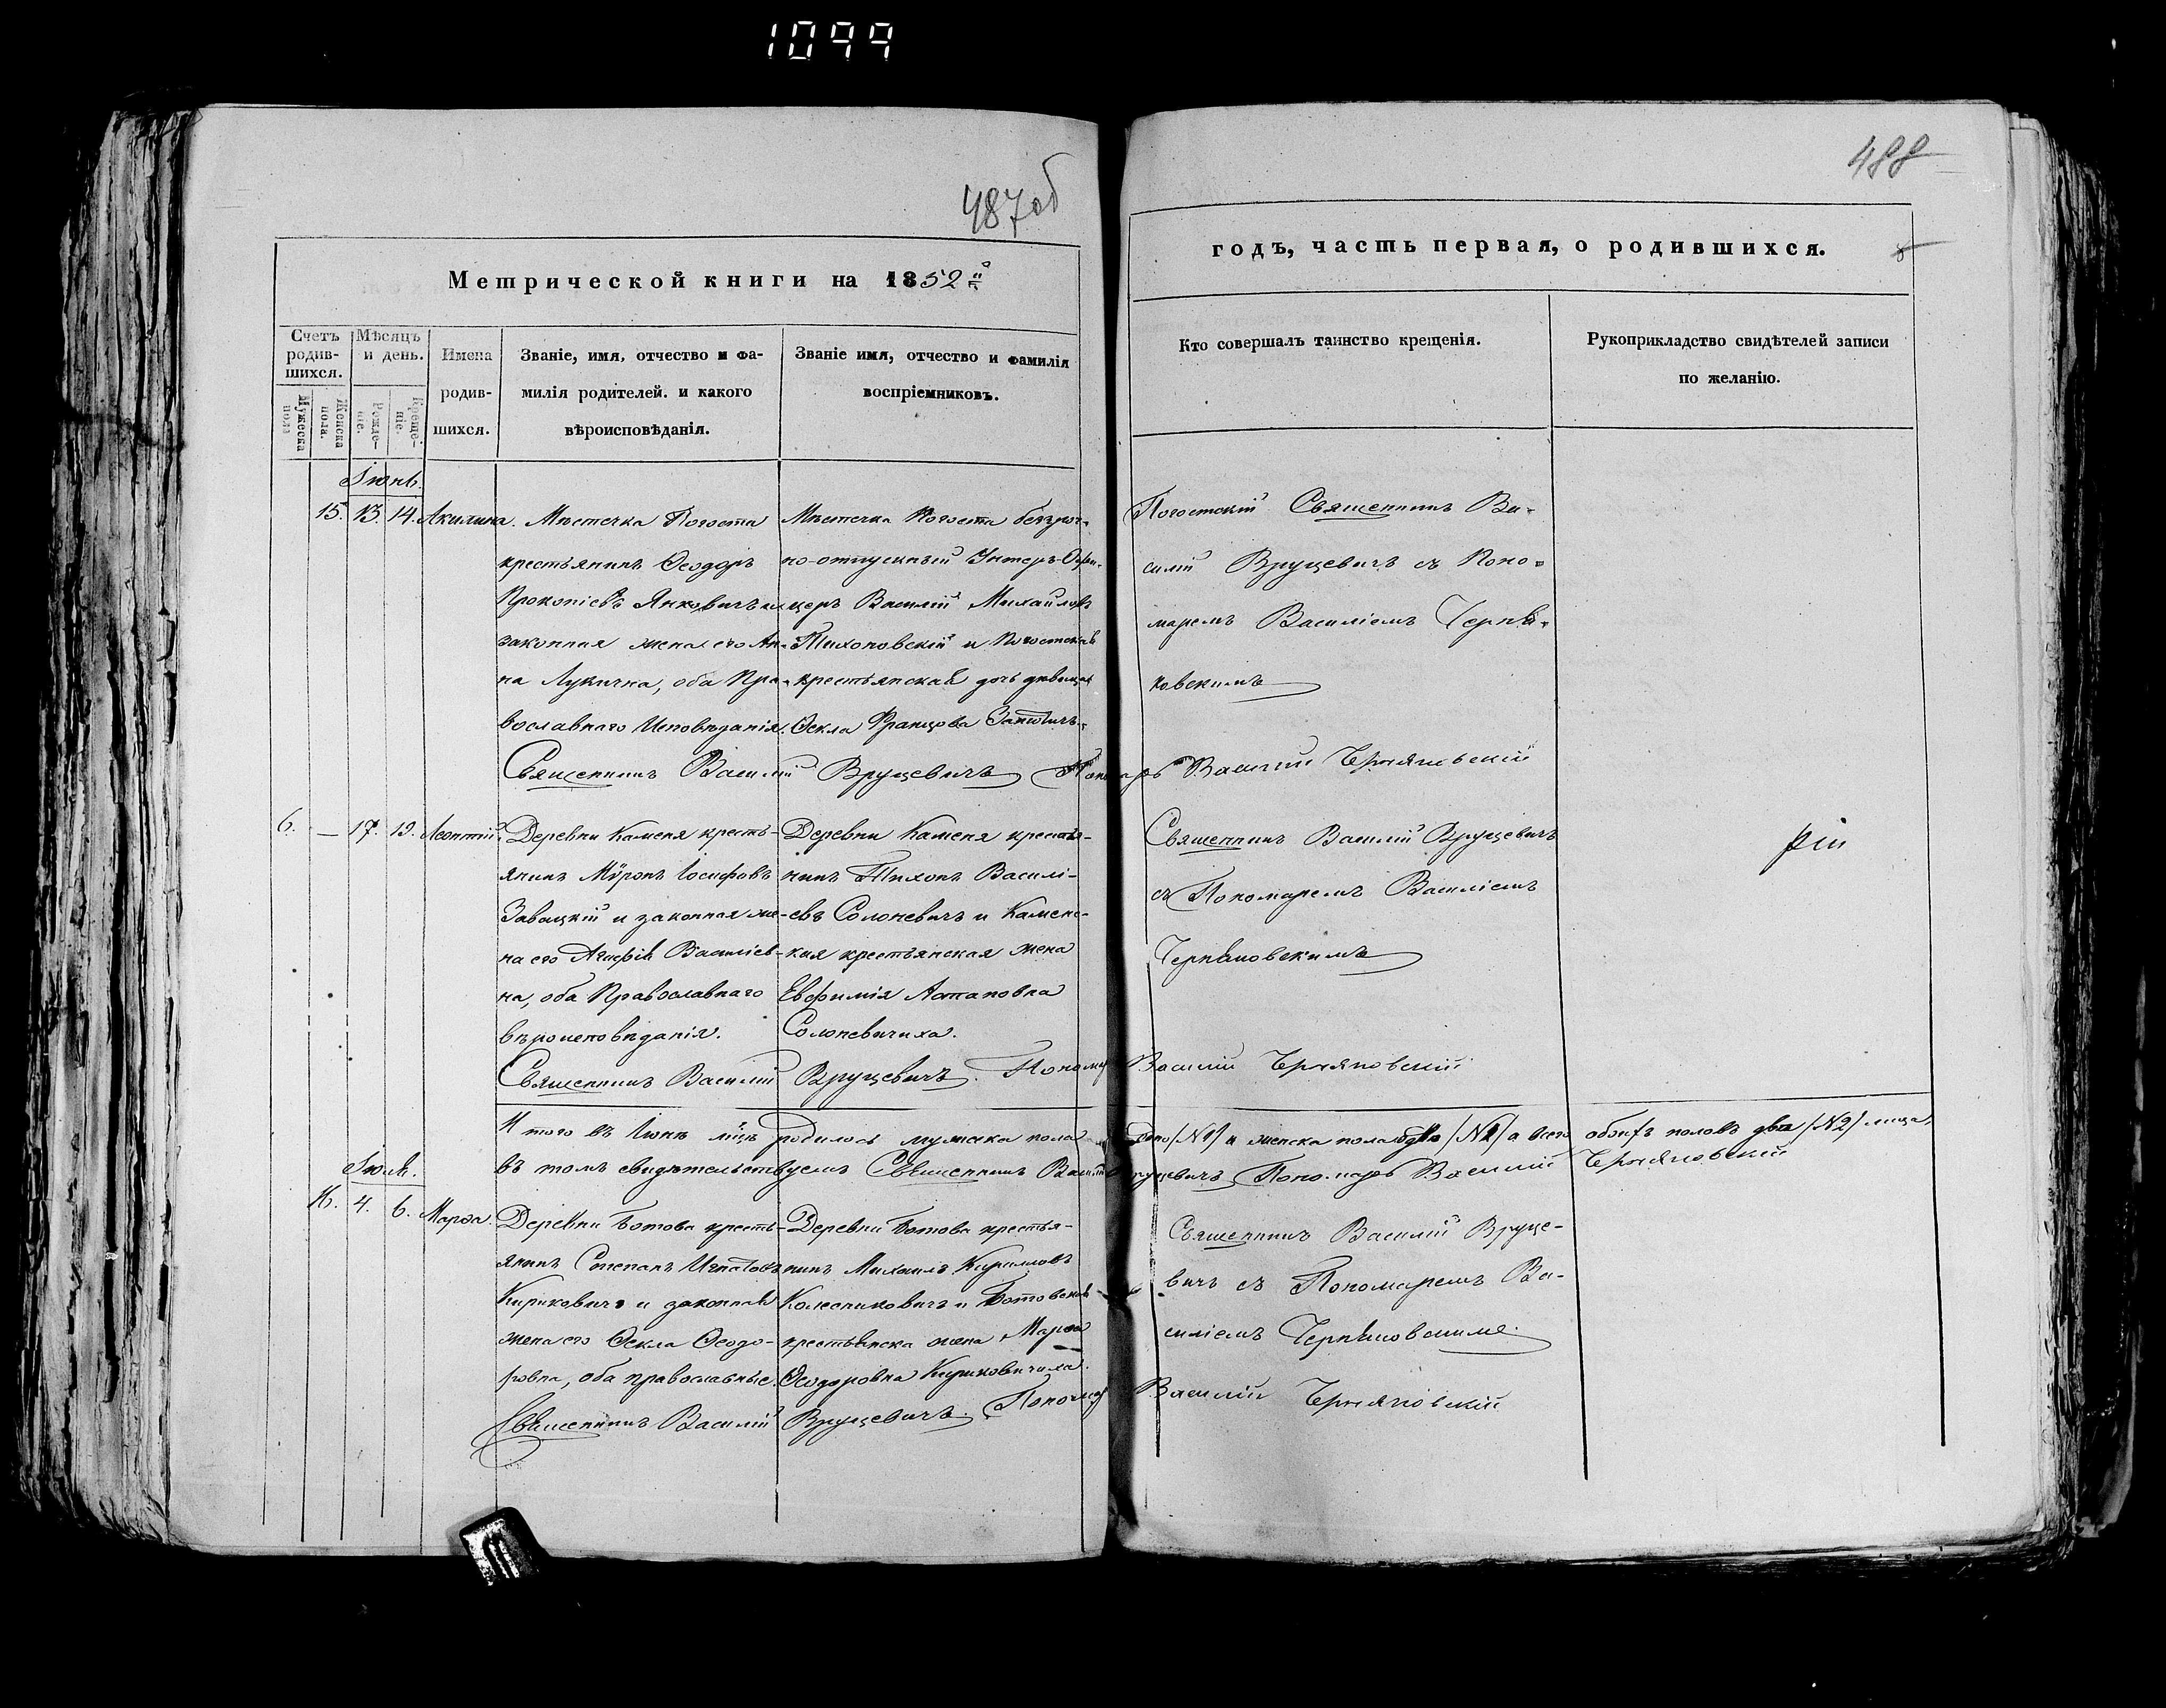 1099
487об
488
Метрической книги на 1852й
годъ, часть первая, о родившихся.
8
Счетъ родив-шихся.
Мѣсяцъ и день.
Имена родив-шихся.
Званіе, имя, отчество и фа-
милія родителей. и какого
вѣроисповѣданія.
Званіе имя, отчество и фамилія
воспріемниковъ.
Кто совершалъ таинство крещенія.
Рукоприкладство свидѣтелей записи
по желанію.
Мужеска пола
Женска пола.
Рожде-ніе.
Креще-ніе.
Іюнь.
15. 13. 14. Акилина.
Мѣстечка Погоста
крестьянинъ Ѳеодоръ
Прокопіевъ Янковичъ и
законная жена его Ан-
на Лукична, оба Пра-
вославнаго Исповѣданія.
Мѣстечка Погоста безсроч-
но-отпускный Унтеръ-Офи-
церъ Василій Михайловъ
Тихоновскій и Погостская
крестьянская дочь дѣвица
Ѳекла Францова
Погостскій Священникъ Ва-
силій Вруцевичъ съ Поно-
маремъ Василіемъ Черня-
ковскимъ
Священникъ Василій Вруцевичъ Пономарь Василій Черняковскій
6. — 17. 19. Леонтій.
Деревни Каменя кресть-
янинъ Мѵронъ Іосифовъ
Завацкій и законная же-
на его Агафія Василіев-
на, оба Православнаго
вѣроисповѣданія.
Деревни Каменя крестья-
нинъ Тихонъ Василі-
евъ Солоневичъ и Каменс-
кая крестьянская жена
Евфимія Астаповна
Солоневичиха.
Священникъ Василій Вруцевичъ
съ Пономаремъ Василіемъ
Черняковскимъ
Священникъ Василій Вруцевичъ. Пономарь Василій Черняковскій
И того въ Іюнѣ мцѣ родилось мужска пола одно /№1/ и женска пола одно /№1/ а всего обоихъ половъ два /№2/ лица,
въ томъ свидѣтельствуемъ Священникъ Василій Вруцевичъ Пономарь Василій Черняковскій
Іюль.
16. 4. 6. Марѳа.
Деревни Ботова кресть-
янинъ Степанъ Игнатовъ
Кириковичъ и законная
жена его Ѳекла Ѳеодо-
ровна, оба православные.
Деревни Ботова крестья-
нинъ Михаилъ Кирилловъ
Колесниковичъ и Ботовская
крестьянска жена Марѳа
Ѳеодоровна Кириковичиха.
Священникъ Василій Вруце-
вичъ съ Пономаремъ Ва-
силіемъ Черняковскимъ.
Священникъ Василій Вруцевичъ. Пономарь Василій Черняковскій